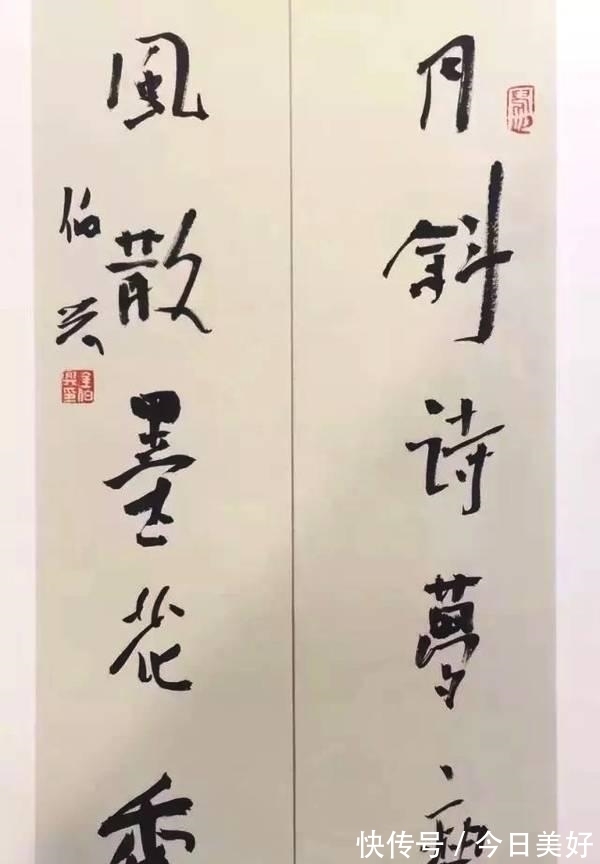 月斜诗夢
風散墨花香
伯兴
快传号 / 今日美好